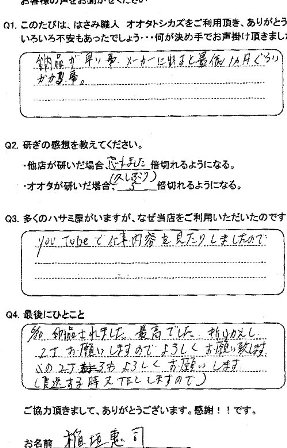 お客様の声をお聞かせください
Q1. このたびは、はさみ職人 オオタトシカズをご利用頂き、ありがとう
いろいろ不安もあったでしょう・・・何が決め手でお声掛け頂きまし
納品が早い事、メーカーに出すと最低1カ月ぐらい
かかる事。
Q2. 研ぎの感想を教えてください。
・他店が研いだ場合、忘れました 倍切れるようになる。
(久しぶり)
・オオタが研いだ場合、5 倍切れるようになる。
Q3. 多くのハサミ屋がいますが、なぜ当店をご利用いただいたのです
You Tubeで仕事内容を見たりしましたので
Q4. 最後にひとこと
納品されました。最高でした。折りかえし
2丁お願いしますのでよろしくお願い致します
2丁もよろしくお願いします
(発送する時又TELしますので)
ご協力頂きまして、ありがとうございます。感謝！！です。
お名前 稲垣恵司